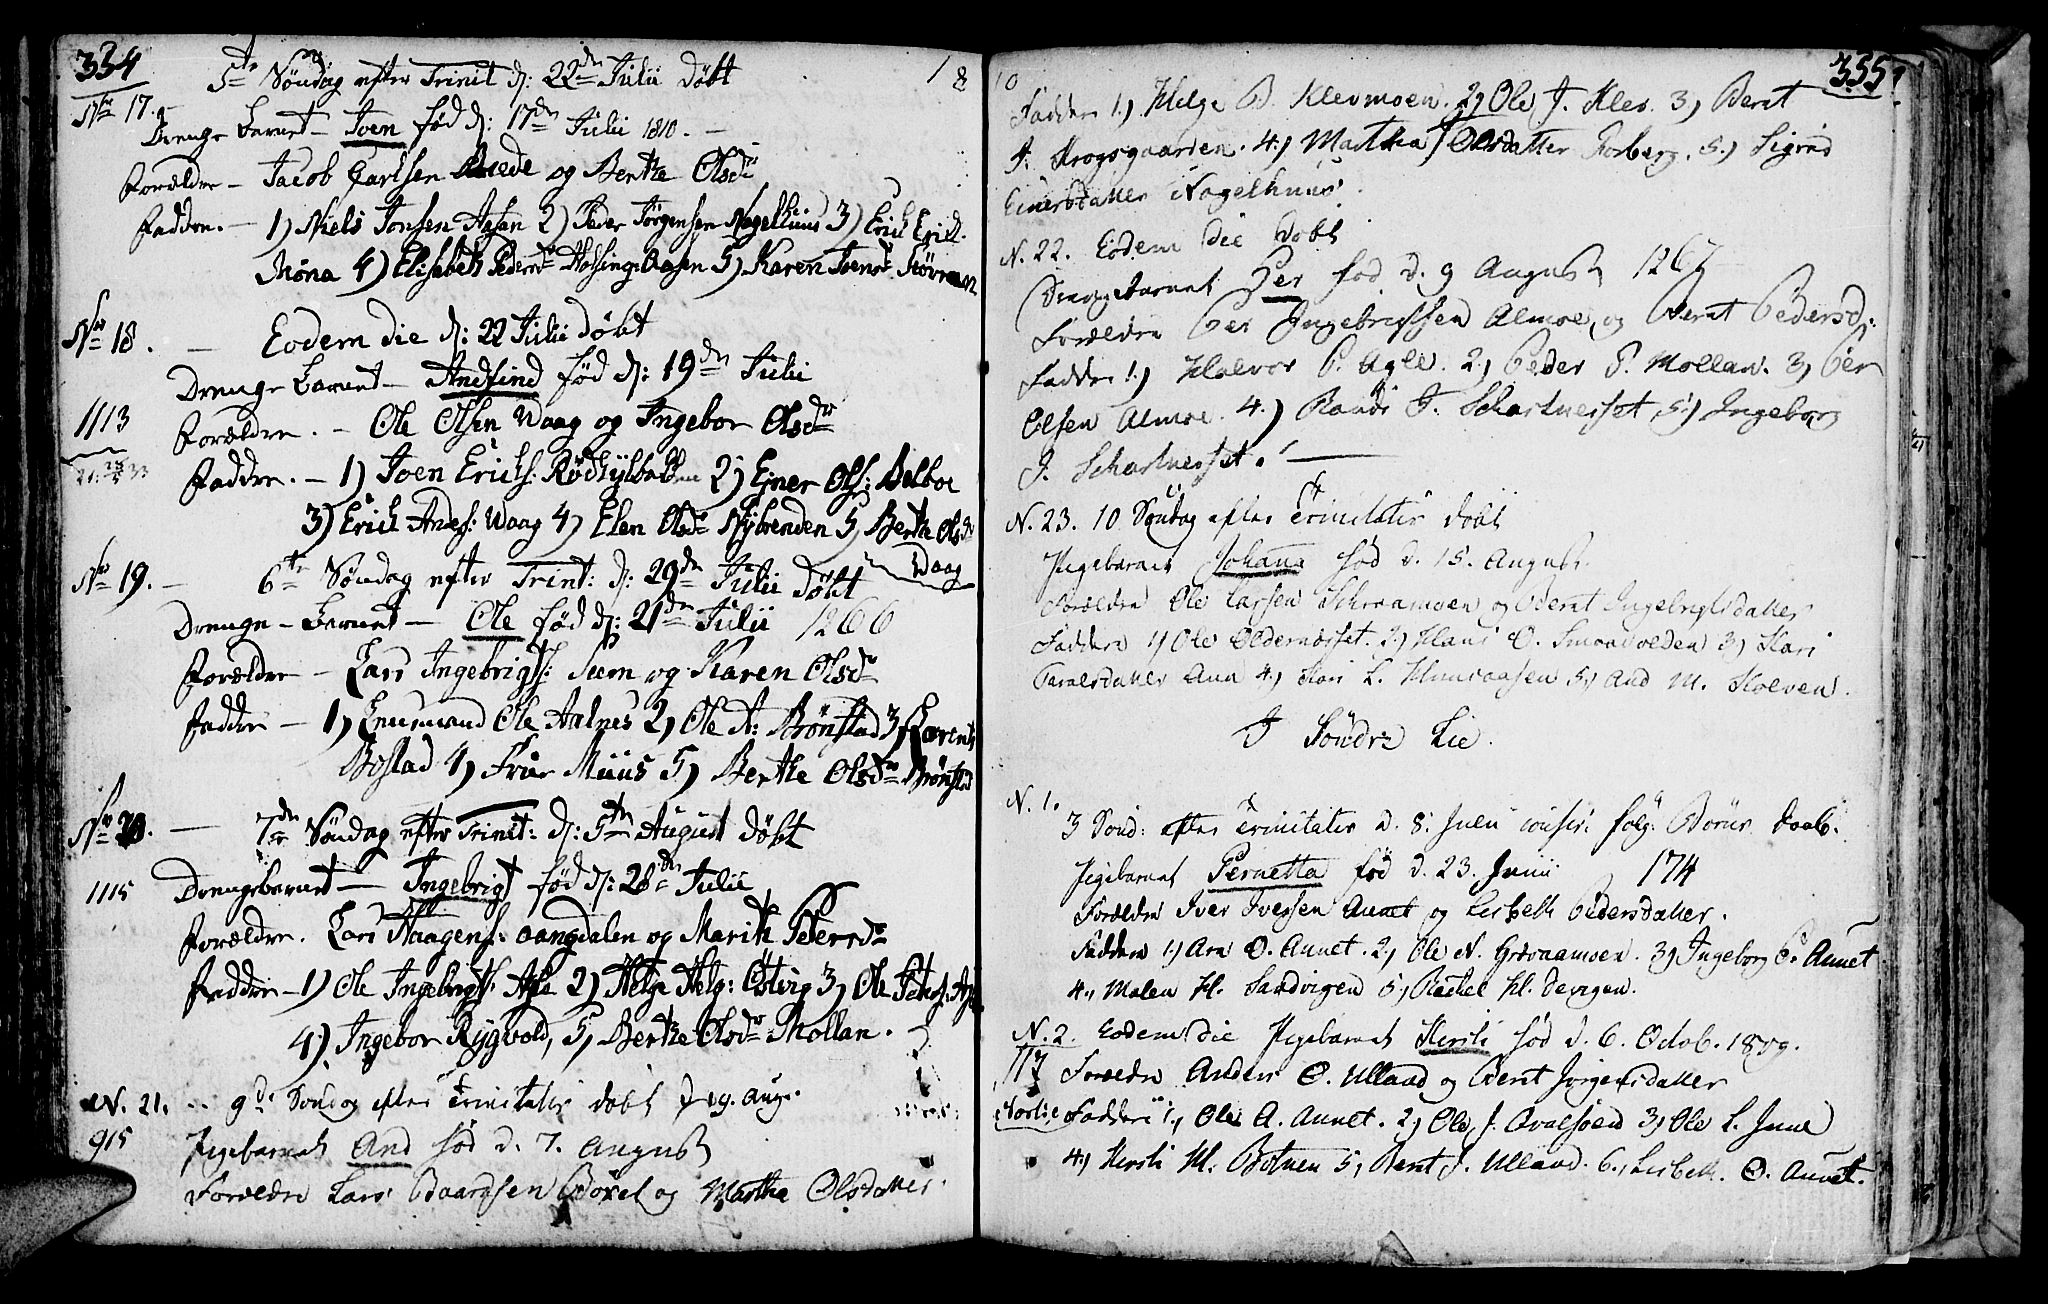 334
18
5te Søndag efter Trinit d: 22den Julii døbt
No 17. Drenge Barnet – Joen fød d: 17den Julii 1810. –
Forældre – Jacob Carlsen og Berthe Olsdr
Faddre. – 1) Niels Jonsen Aasen 2) Peder Jørgensen Nagelhuus 3) Erich Erich.
Mona 4) Elisabeth Pedersdr 5) Karen Joensdr
No 18. – Eodem die d: 22 Julii døbt
Drenge Barnet – Andfind fød d: 19den Julii
1113
Forældre. – Ole Olsen Waag og Ingebor Olsdr
Faddre. – 1) Joen Erichs: 2) Ejner Ols: Belboe
3) Erich Anders: Waag 4) Elen Olsdr Nybrenden 5) Berthe Olsdr
Waag
No 19. – 6te Søndag efter Trint: d: 29de Julii døbt
Drenge – Barnet – Ole fød d: 21den Julii 1266
Forældre – Lars Ingebrigts: Seem og Karen Olsdr
Faddre – 1) Lensmand Ole Aalnes 2) Ole A: Brønstad 3) Lorents
Bostad 4) Frue Muus 5) Berthe Olsdr Brønstad
No 20. – 7de Søndag efter Trinit: d: 5te August døbt
1115 Drengebarnet – Ingebrigt fød d: 28de Julii
Forældre. Lars Haagens: aangdalen og Marith Pedersdr
Faddre – 1) Ole Ingebrigts: Agle 2) Helge Helg: Østvig 3) Ole Peters: Agle
4) Ingebor Rygvold, 5) Berthe Olsdr Mollan.
N. 21. 9de Søndag efter Trinitatis døbt d 19. Aug.
915 Pigebarnet And fød d. 7. August
Forældre Lars Baardsen og Martha Olsdatter.
10
335
Faddre 1.) Helge B. Klevmoen. 2) Ole J. Klev. 3) Berat
J. Krogsgaarden. 4) Martha Olsdatter Forberg. 5.) Sigrid
Einersdatter Nagelhuus.
N. 22. Eodem die døbt
Drengebarnet Per fød d. 9 August 1267
Forældre Per Ingebrigtsen Almoe, og Berat Pedersd:
Faddre 1.) Halvor P. Agle. 2.) Peder P. Mollan. 3) Per
Olsen Almoe. 4.) Randi J. Schartnesset, 5.) Ingeborg
J. Schartnesset. –
N. 23. 10 Søndag efter Trinitatis døbt
Pigebarnet Johana fød d. 15. August.
Forældre Ole Larsen og Berat Ingebrigtsdatter
Faddere 1) Ole Oldernæsset. 2.) Hans O. Smaavolden 3) Kari
4.) Kari L. 5.) And M. Kolven.
I Söndre Lie.
N. 1. 3 Sönd: efter Trinitatis d. 8. Julii følg: Börns Daab.
Pigebarnet Pernetta fød d. 23. Junii 174
Forældre Iver Iversen Annet og Lisbeth Pedersdatter.
Faddere 1.) O. Annet. 2.) Ole N. 3) Ingeborg P. Annet
4.) Malen H. Sandvigen 5.) Rachel H. Devigen.
N. 2. Eodem die Pigebarnet Kersti fød d. 6. Octob. 1809.
Forældre Anders O. Ulland og Berat Jörgensdatter
Nordlie Faddere 1.) Ole A. Annet. 2.) Ole J. Qvalsöen 3) Ole L. June
4.) Kersti M. Botnen 5.) Berat J. Ulland. 6.) Lisbeth. O. Annet.